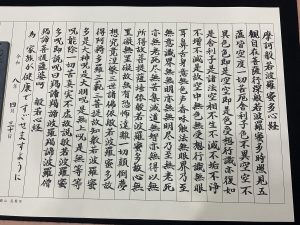 摩訶般若波羅蜜多心経
観自在菩薩行深般若波羅蜜多時照見五
蘊皆空度一切苦厄舎利子色不異空空不
異色色即是空空即是色受想行識亦復如
是舎利子是諸法空相不生不滅不垢不浄
不増不減是故空中無色無受想行識無眼
耳鼻舌身意無色声香味触法無眼界乃至
無意識界無無明亦無無明尽乃至無老死
亦無老死尽無苦集滅道無智亦無得以無
所得故菩提薩埵依般若波羅蜜多故心無
罣礙無罣礙故無有恐怖遠離一切顛倒夢
想究竟涅槃三世諸仏依般若波羅蜜多故
得阿耨多羅三藐三菩提故知般若波羅蜜
多是大神呪是大明呪是無上呪是無等等
呪能除一切苦真実不虚故説般若波羅蜜
多呪即説呪曰羯諦羯諦波羅羯諦波羅僧
羯諦菩提薩婆訶 般若心経
為 家族が健康ですごせますように
八年 四月 三十日